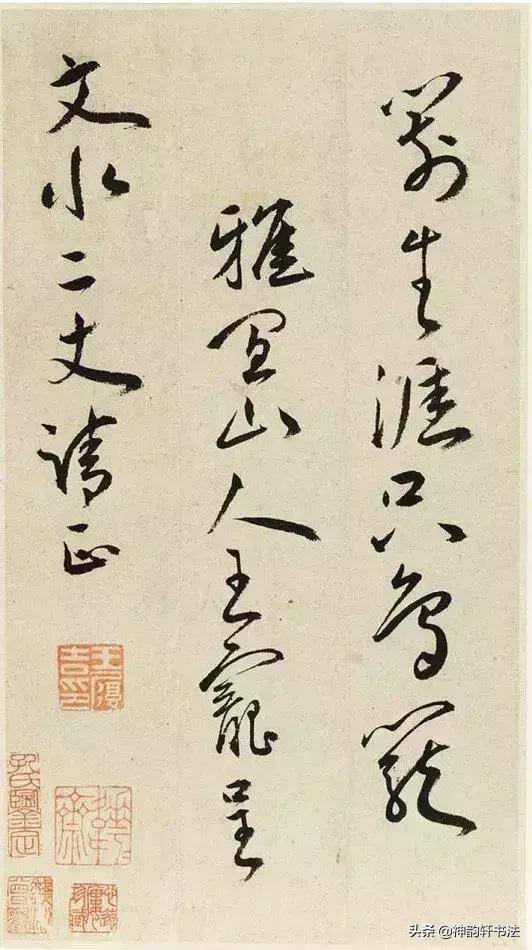 生涯只鳥籠
雅宜山人王寵呈
文水二丈請正
王履吉印
头条 @神韵轩书法